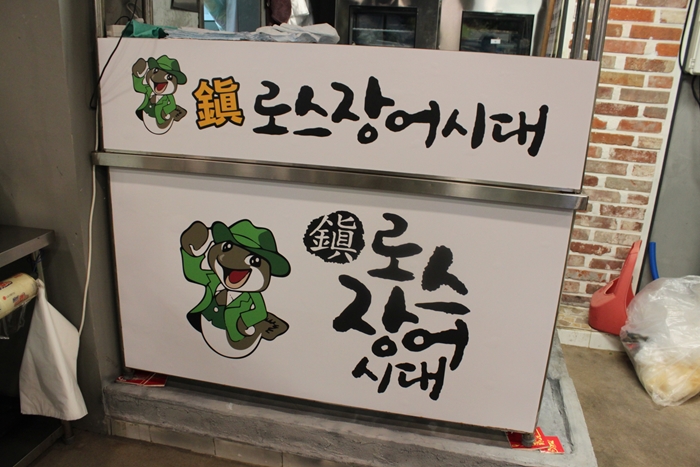 鎭 로스장어시대
鎭 로스
장어
시대